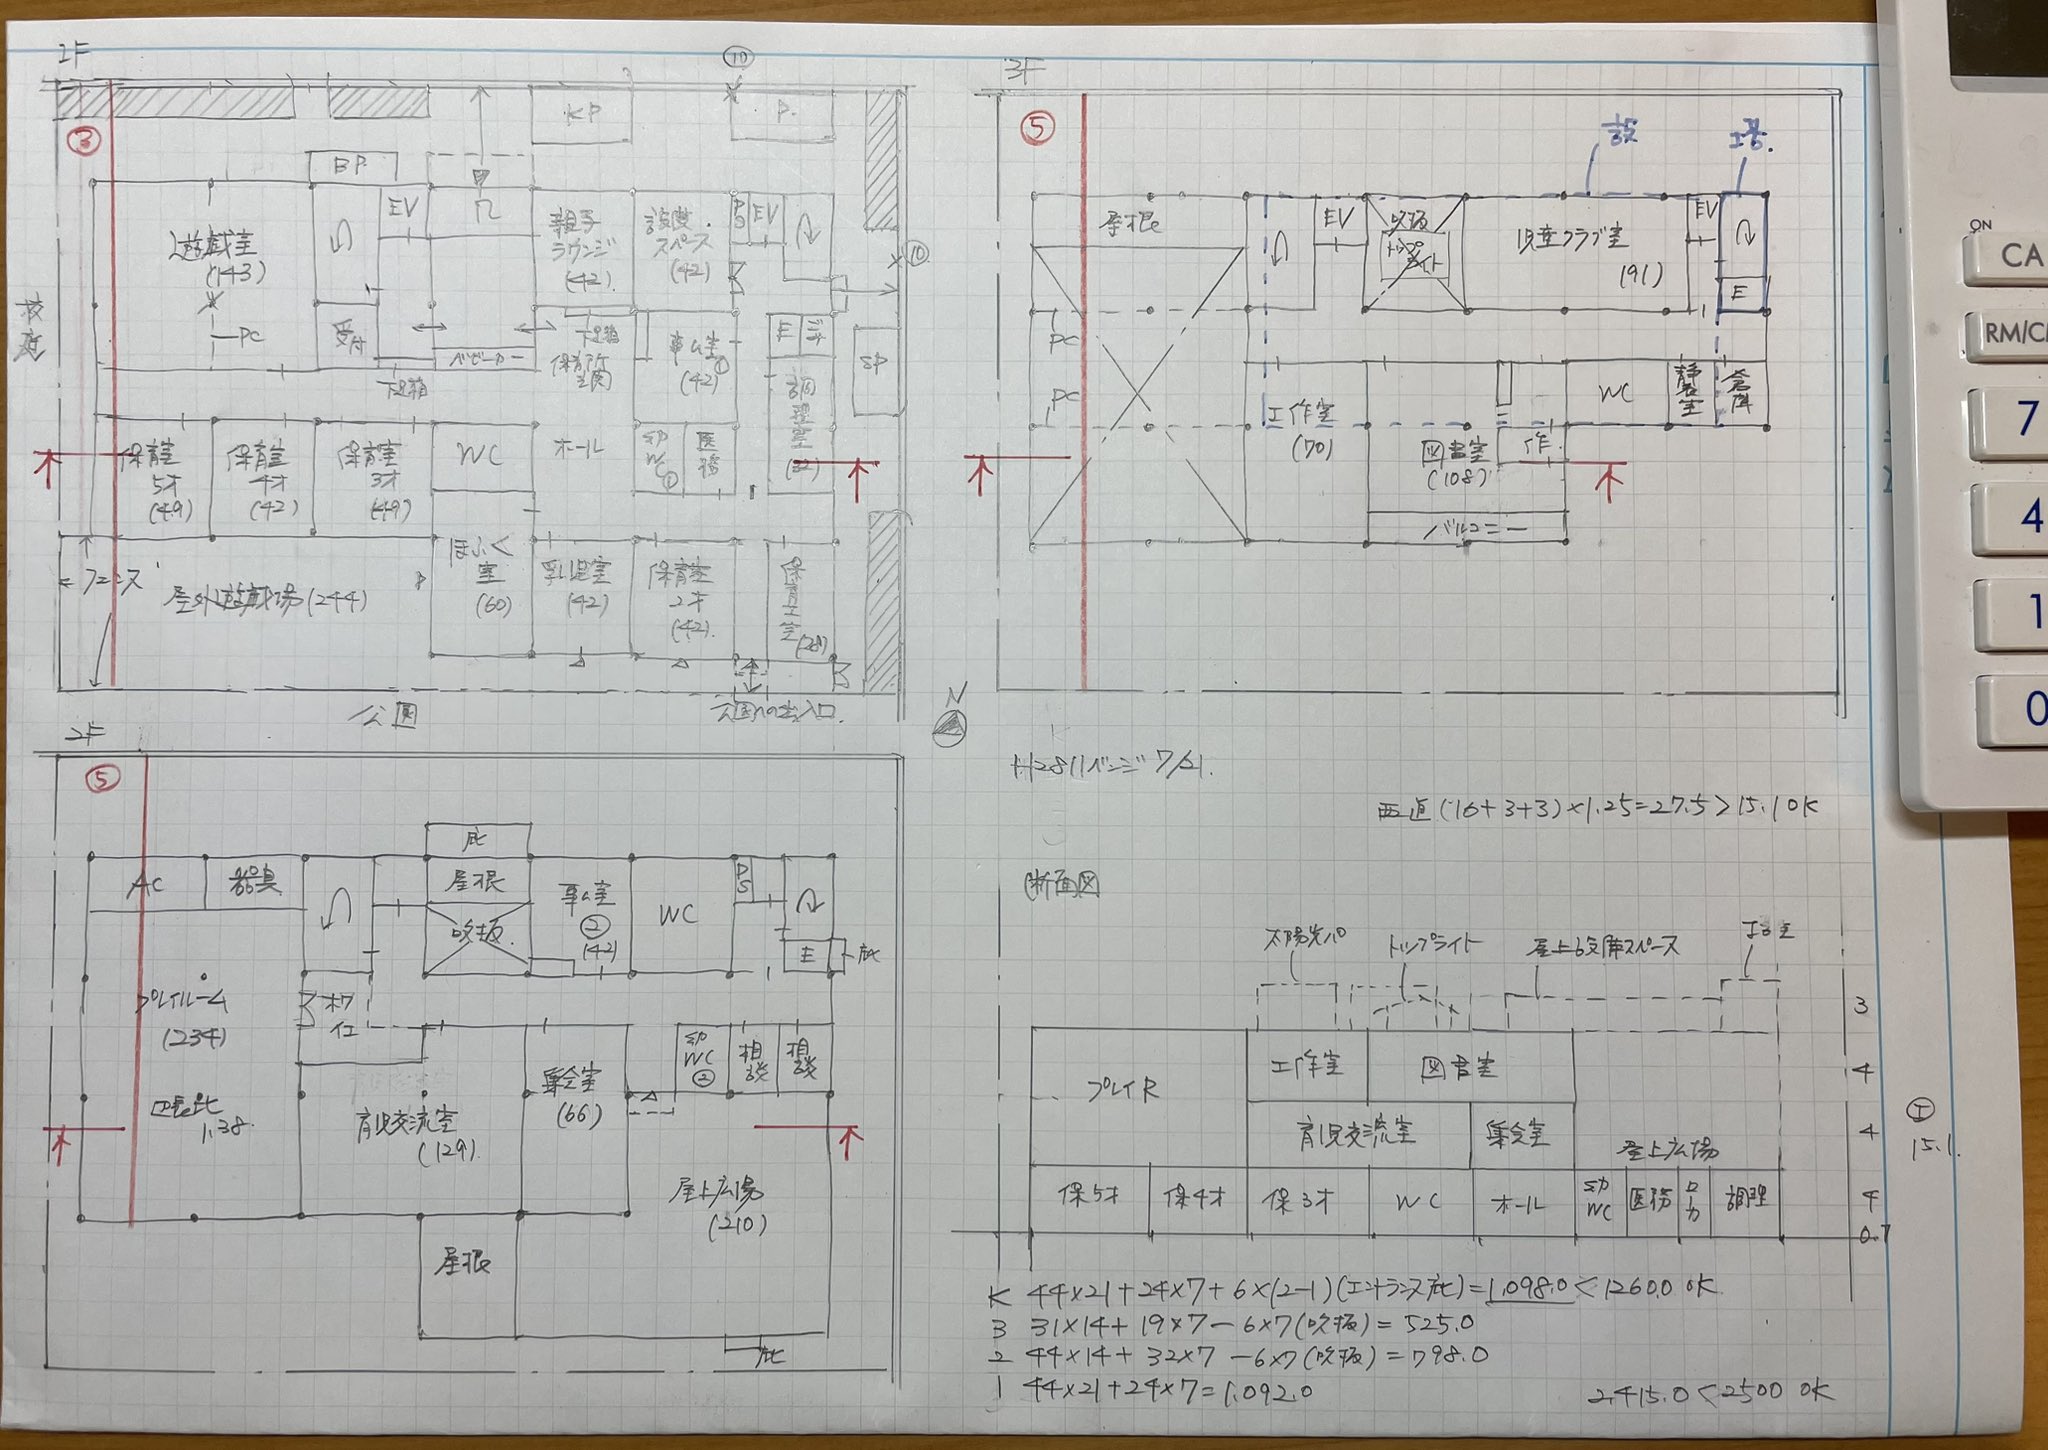 2F
③
⑩
KP
P.
BP
EV
遊戯室
(143)
PC
受付
親子
ラウンジ
(42)
設備
スペース
(42)
PS
EV
⑩
校庭
下足箱
ベビーカー
下足箱
保育所
玄関
事ム室①
(42)
E
ゴミ
調理室
SP
保育室
5才
(49)
保育室
4才
(42)
保育室
3才
(49)
WC
ホール
幼
WC
①
医務
フェンス
屋外遊戯場(244)
ほふく
室
(60)
乳児室
(42)
保育室
2才
(42)
保育士室
(28)
公園
公園への出入口
N
3F
⑤
設
工基.
屋根
EV
吹抜
トップライト
児童クラブ室
(91)
EV
E
PC
PC
工作室
(70)
図書室
(108)
作
WC
静養室
倉庫
バルコニー
H28リベンジ 7/21.
西道(16+3+3)×1.25=27.5>15.1 OK
2F
⑤
庇
AC
器具
屋根
吹抜
事ム室
②
(42)
WC
PS
E
庇
プレイルーム
(234)
ホワイエ
辺長比
1.38
育児交流室
(129)
集会室
(66)
幼
WC
②
相談
相談
屋上広場
(210)
屋根
庇
断面図
太陽光パ
トップライト
屋上設備スペース
プレイR
工作室
図書室
育児交流室
集会室
屋上広場
保5才
保4才
保3才
WC
ホール
幼
WC
医務
ロカ
調理
3
4
4
4
0.7
15.1
K 44×21+24×7+6×(2-1)(エントランス庇)=1,098.0<1260.0 OK
3 31×14+19×7-6×7(吹抜)=525.0
2 44×14+32×7-6×7(吹抜)=798.0
1 44×21+24×7=1,092.0
2,415.0<2500 OK
ON
CA
7
4
1
0